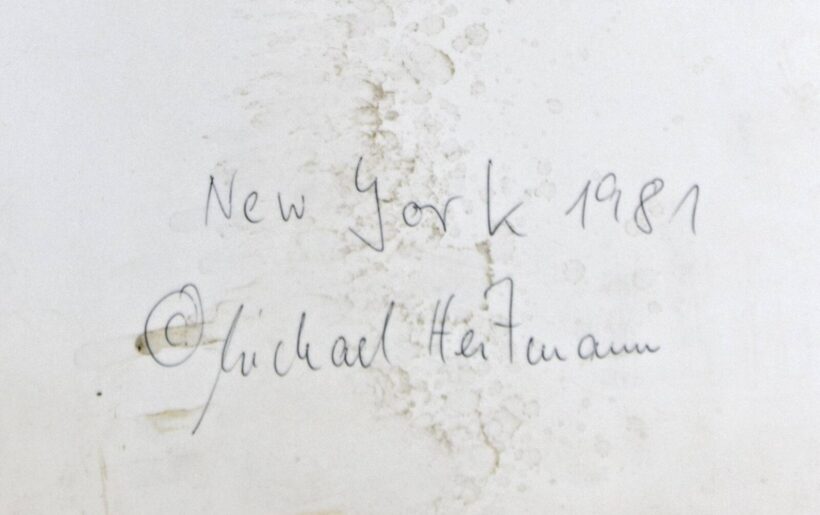 New York 1981
© Michael Heitmann